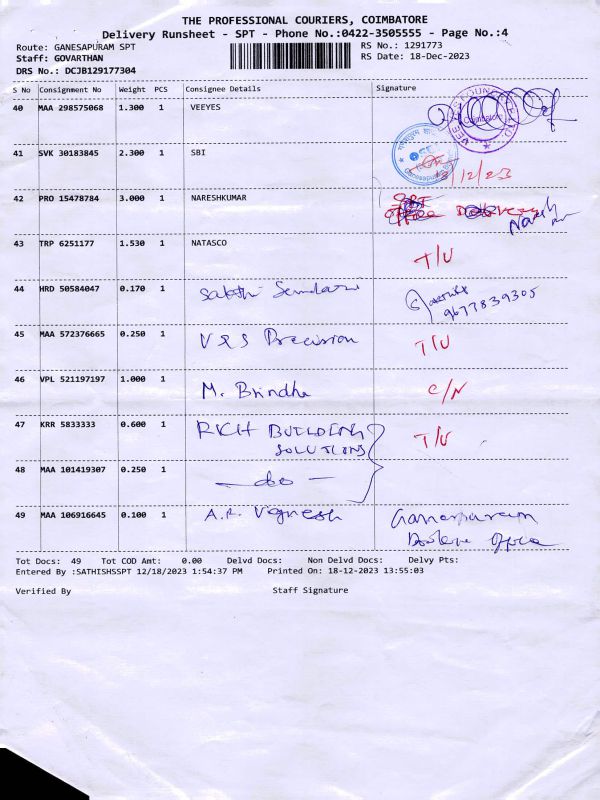 THE PROFESSIONAL COURIERS, COIMBATORE
Delivery Runsheet - SPT - Phone No.:0422-3505555 - Page No.:4
Route: GANESAPURAM SPT
RS No.: 1291773
Staff: GOVARTHAN
RS Date: 18-Dec-2023
DRS No.: DCJB129177304
S No Consignment No Weight PCS Consignee Details Signature
40 MAA 298575068 1.300 1 VEEYES
Coimbatore
41 SVK 30183845 2.300 1 SBI
18/12/23
42 PRO 15478784 3.000 1 NARESHKUMAR
Office Delivery
Naresh
43 TRP 6251177 1.530 1 NATASCO T/U
44 HRD 50584047 0.170 1 Sakthi
9677839305
45 MAA 572376665 0.250 1 V&S Precision T/U
46 VPL 521197197 1.000 1 M. Brindha C/N
47 KRR 5833333 0.600 1 RICH BUILDING T/U
SOLUTIONS
48 MAA 101419307 0.250 1 — do —
49 MAA 106916645 0.100 1 A.R. Vignesh Ganesapuram
Office
Tot Docs: 49 Tot COD Amt: 0.00 Delvd Docs: Non Delvd Docs: Delvy Pts:
Entered By :SATHISHSSPT 12/18/2023 1:54:37 PM Printed On: 18-12-2023 13:55:03
Verified By Staff Signature